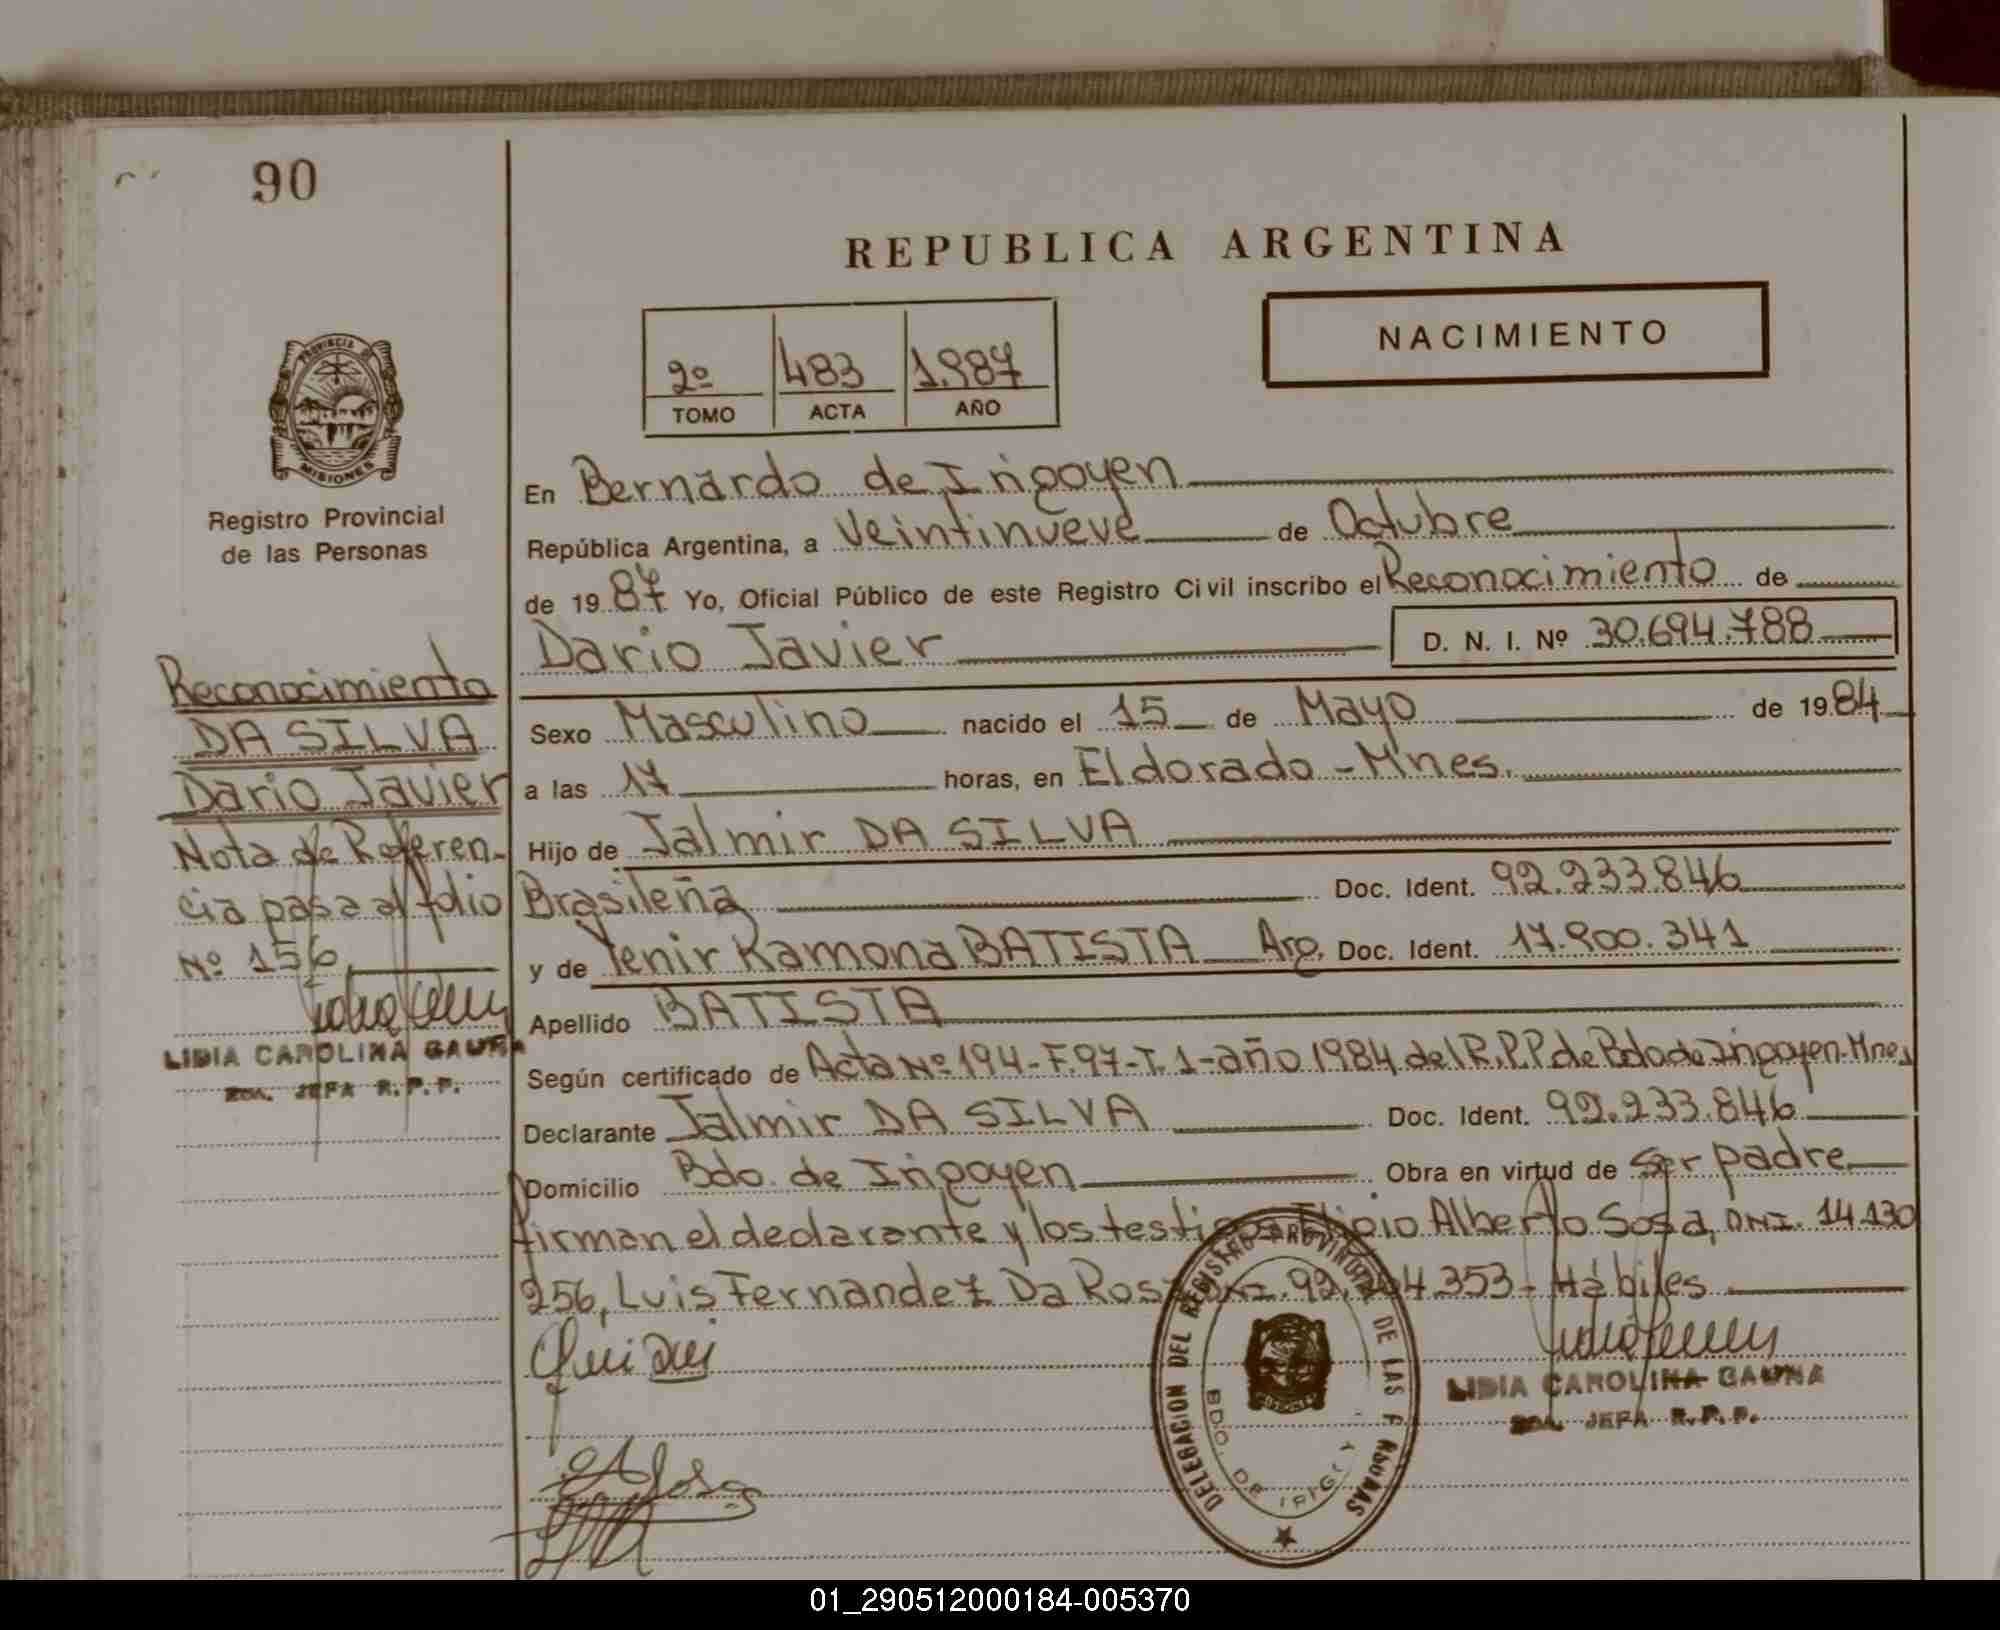 90
REPUBLICA ARGENTINA
NACIMIENTO
2º 483 1.987
TOMO ACTA AÑO
PROVINCIA DE
MISIONES
Registro Provincial
de las Personas
En Bernardo de Irigoyen
República Argentina, a Veintinueve de Octubre
de 19 87 Yo, Oficial Público de este Registro Civil inscribo el Reconocimiento de
Dario Javier D. N. I. Nº 30.694.788
Sexo Masculino nacido el 15 de Mayo de 19 84
a las 17 horas, en Eldorado - Mnes.
Hijo de Jalmir DA SILVA
Brasileña Doc. Ident. 92.233.846
y de Yenir Ramona BATISTA Arg. Doc. Ident. 17.900.341
Apellido BATISTA
Según certificado de Acta Nº 194 - F. 97 - T. 1 - año 1984 del R.P.P de Bdo de Irigoyen - Mnes
Declarante Jalmir DA SILVA Doc. Ident. 92.233.846
Domicilio Bdo. de Irigoyen Obra en virtud de Ser padre
firman el declarante y los testigos Alberto Sosa, DNI. 14.130
256, Luis Fernandez Da Rosa DNI. 4.353 - Hábiles
Reconocimiento
DA SILVA
Dario Javier
Nota de Referen-
cia pasa al folio
Nº 156
LIDIA CAROLINA GAUNA
JEFA R.P.P.
LIDIA CAROLINA GAUNA
JEFA R.P.P.
DELEGACION DEL REGISTRO PROVINCIAL DE LAS
BDO. DE IRIG
01_290512000184-005370